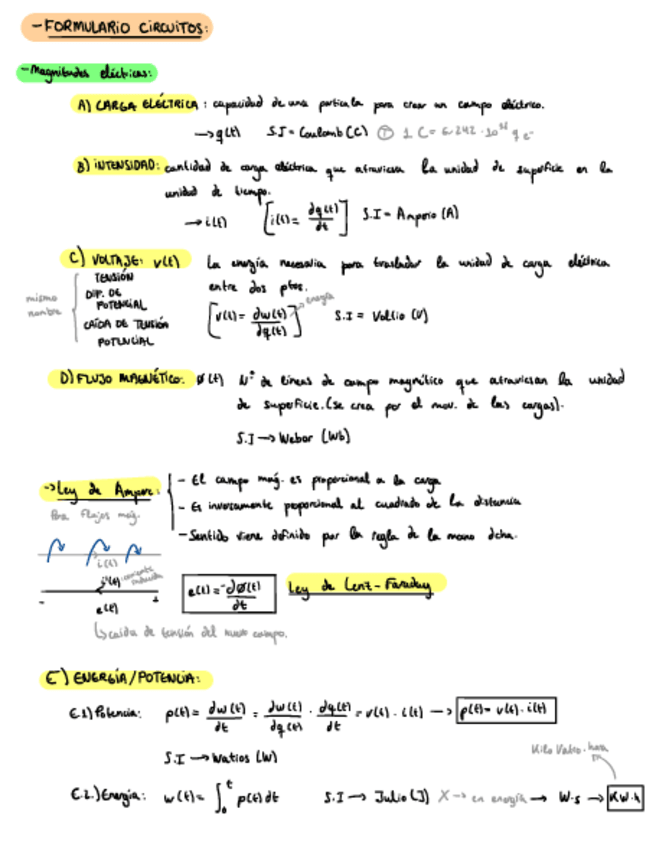 -FORMULARIO CIRCUITOS:
-Magnitudes eléctricas:
A) CARGA ELÉCTRICA: capacidad de una partícula para crear un campo eléctrico.
→q(t) S.I = Coulomb (C) 1 C = 6'242 · 10 q e-
B) INTENSIDAD: cantidad de carga eléctrica que atraviesa la unidad de superficie en la
unidad de tiempo.
→ i(t) [i(t) = dq(t)/dt] S.I = Amperio (A)
C) VOLTAJE: v(t) La energía necesaria para trasladar la unidad de carga eléctrica
TENSIÓN entre dos ptos.
mismo nombre DIF. DE POTENCIAL [v(t) = dw(t)/dq(t)] energía S.I = Voltio (V)
CAÍDA DE TENSIÓN
POTENCIAL
D) FLUJO MAGNÉTICO: ø(t) Nº de líneas de campo magnético que atraviesan la unidad
de superficie. (se crea por el mov. de las cargas).
S.I → Weber (Wb)
→Ley de Ampere: - El campo mag. es proporcional a la carga
Para flujos mag. - Es inversamente proporcional al cuadrado de la distancia
- Sentido viene definido por la regla de la mano dcha.
i(t)
i'(t) corriente inducida
- +
e(t)
e(t) = -dø(t)/dt Ley de Lenz-Faraday
↳ caída de tensión del nuevo campo.
E) ENERGÍA/POTENCIA:
E.1) Potencia: p(t) = dw(t)/dt = dw(t)/dq(t) · dq(t)/dt = v(t) · i(t) → p(t) = v(t) · i(t)
S.I → Watios (W)
Kilo Vatio. hora
E.2.) Energía: w(t) = ∫₀ᵗ p(t) dt S.I → Julio (J) X → en energía → W·s → KW·h